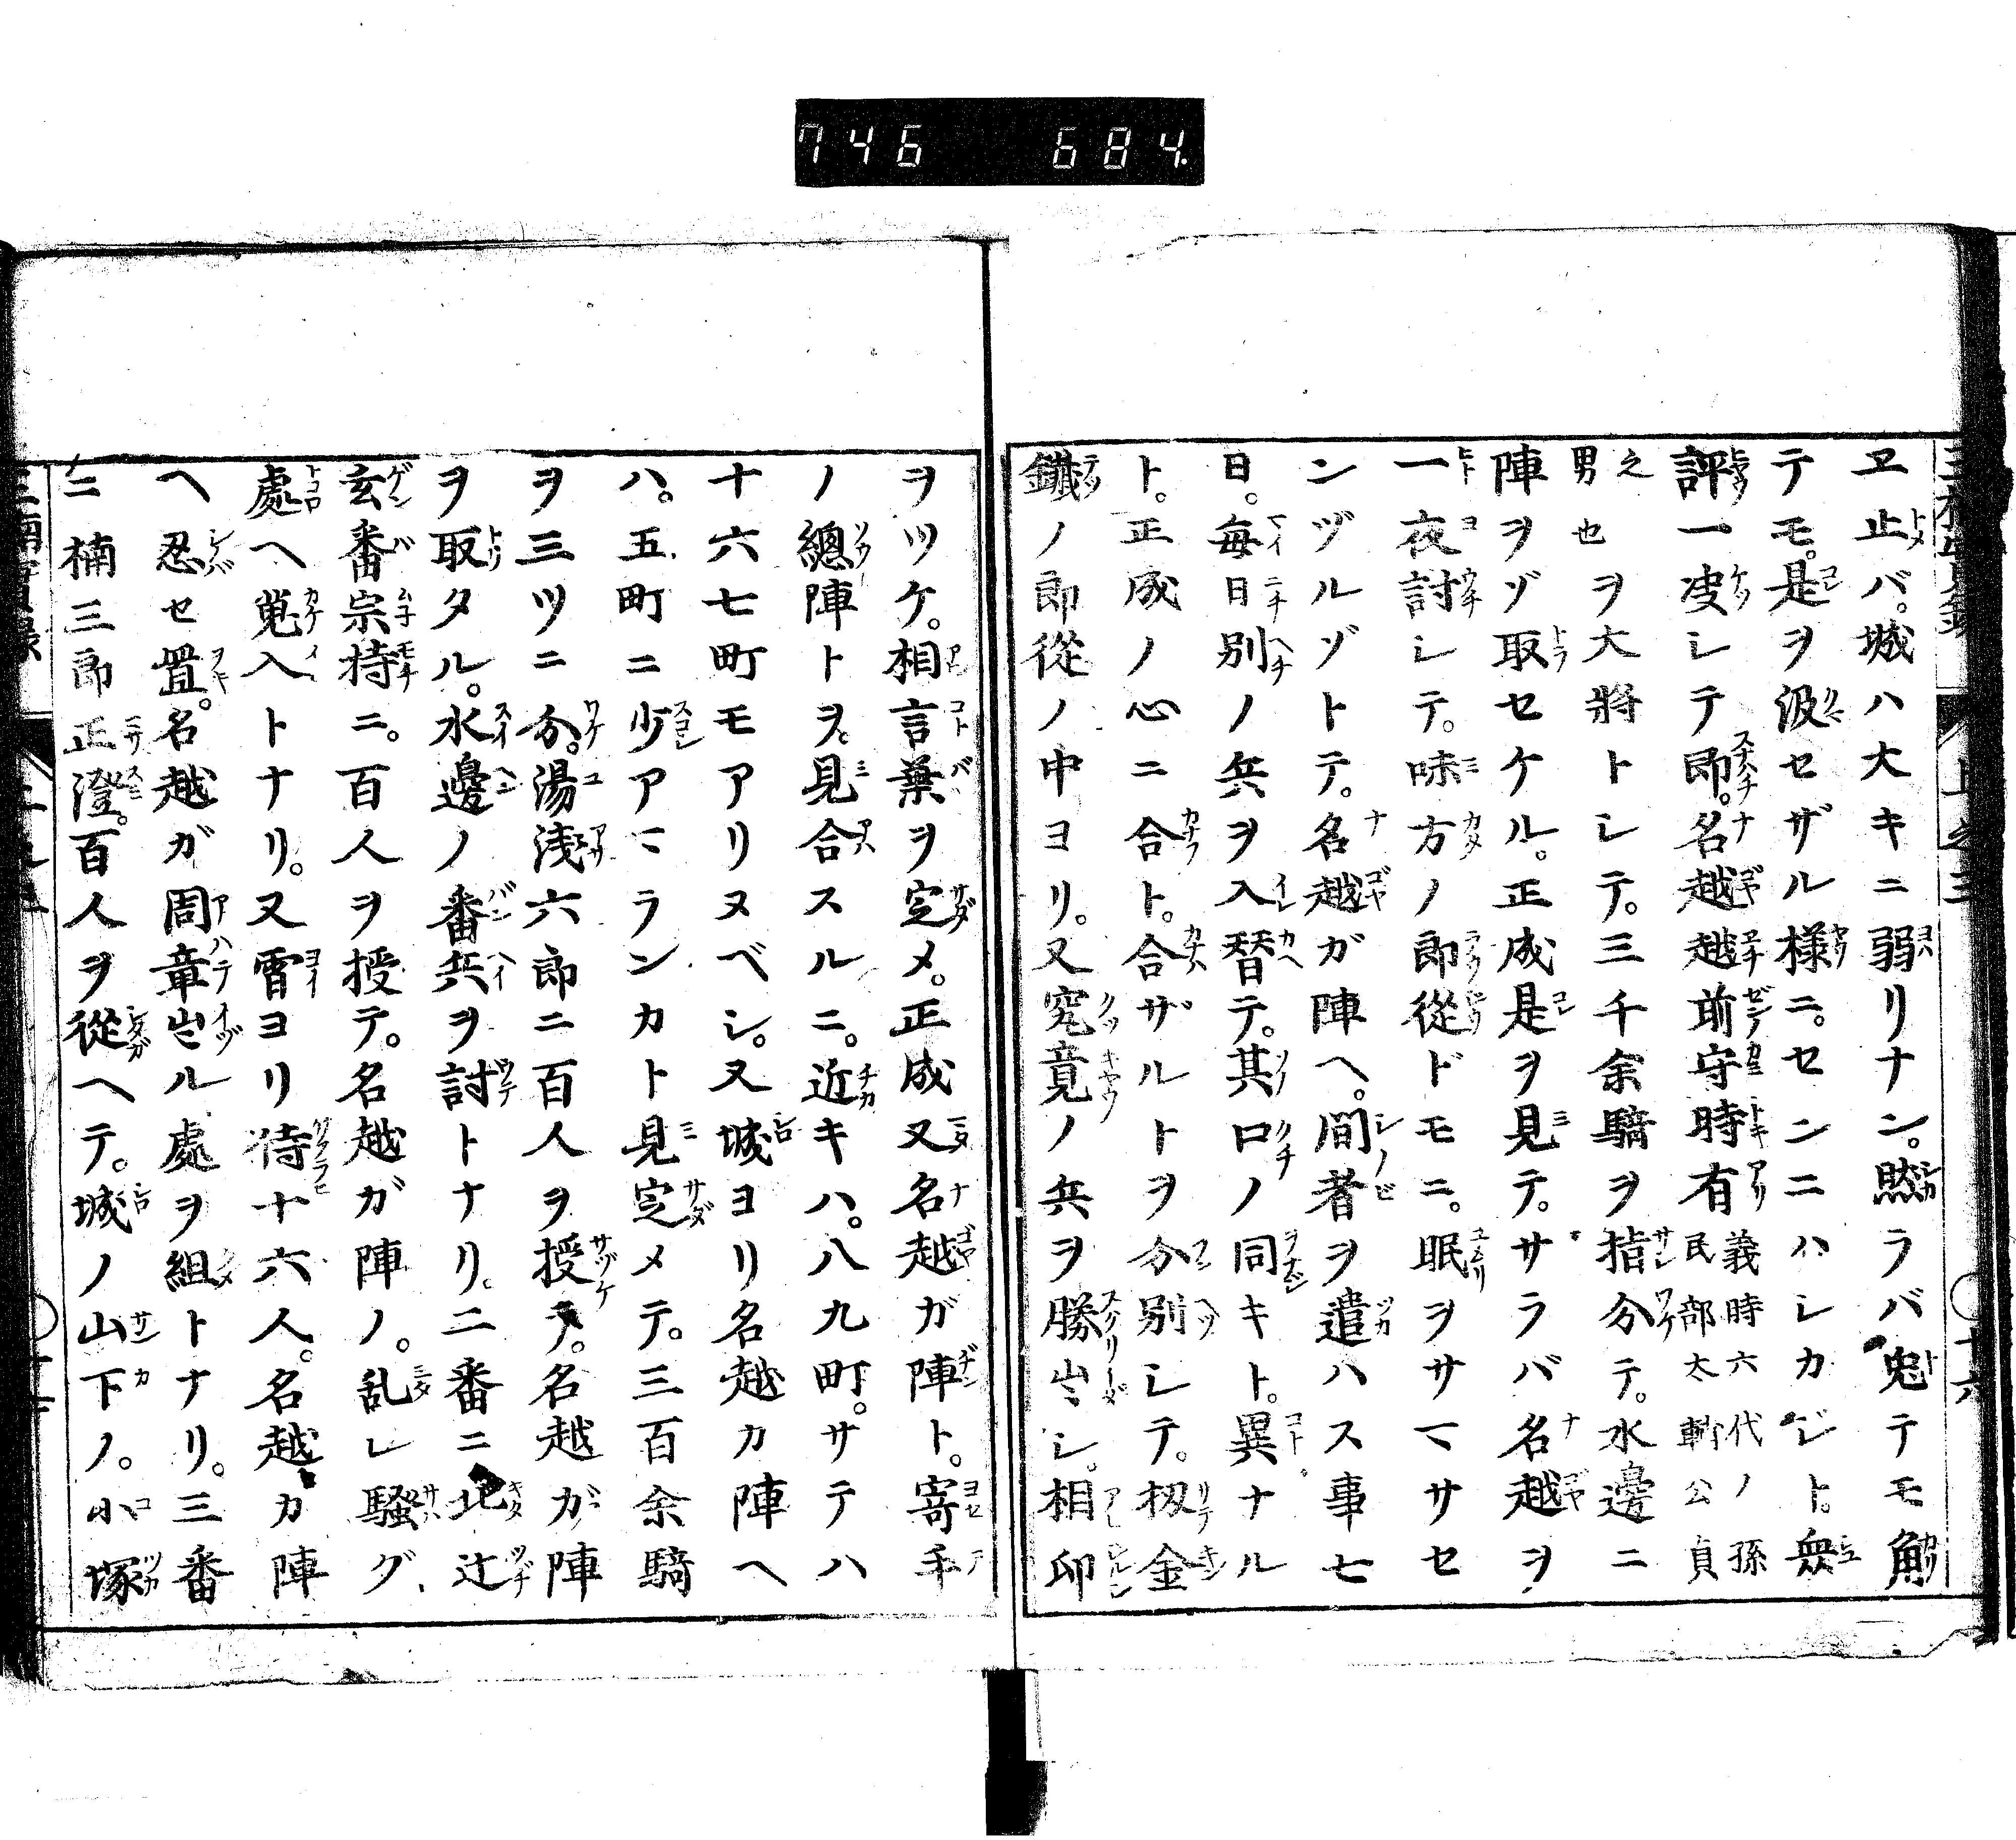 746 684.
ヱ止バ。城ハ大キニ弱リナン。然ラバ兎テモ角
テモ。是ヲ汲セザル様ニ。センニハシカジト。衆
評一决シテ即。名越越前守時有義時六代ノ孫民部太輔公貞
之男也ヲ大將トシテ。三千余騎ヲ指分テ。水邊ニ
陣ヲゾ取セケル。正成是ヲ見テ。サラバ名越ヲ
一夜討シテ。味方ノ郎從ドモニ。眠ヲサマサセ
ンヅルゾトテ。名越ガ陣ヘ。間者ヲ遣ハス事七
日。毎日別ノ兵ヲ入替テ。其口ノ同キト。異ナル
ト。正成ノ心ニ合ト。合ザルトヲ分別シテ。扨金
鐵ノ郎從ノ中ヨリ。又究竟ノ兵ヲ勝出シ。相印
ヲツケ。相言葉ヲ定メ。正成又名越ガ陣ト。寄手
ノ總陣トヲ。見合スルニ。近キハ。八九町。サテハ
十六七町モアリヌベシ。又城ヨリ名越カ陣ヘ
ハ。五町ニ少アマランカト見定メテ。三百余騎
ヲ三ツニ分。湯浅六郎ニ百人ヲ授テ。名越ガ陣
ヲ取タル。水邊ノ番兵ヲ討トナリ。二番ニ北辻
玄番宗持ニ。百人ヲ授テ。名越ガ陣ノ。乱レ騒グ
處ヘ蒐入トナリ。又宵ヨリ待十六人。名越カ陣
ヘ忍セ置。名越ガ周章出ル處ヲ組トナリ。三番
ニ楠三郎正澄。百人ヲ從ヘテ。城ノ山下ノ。小塚